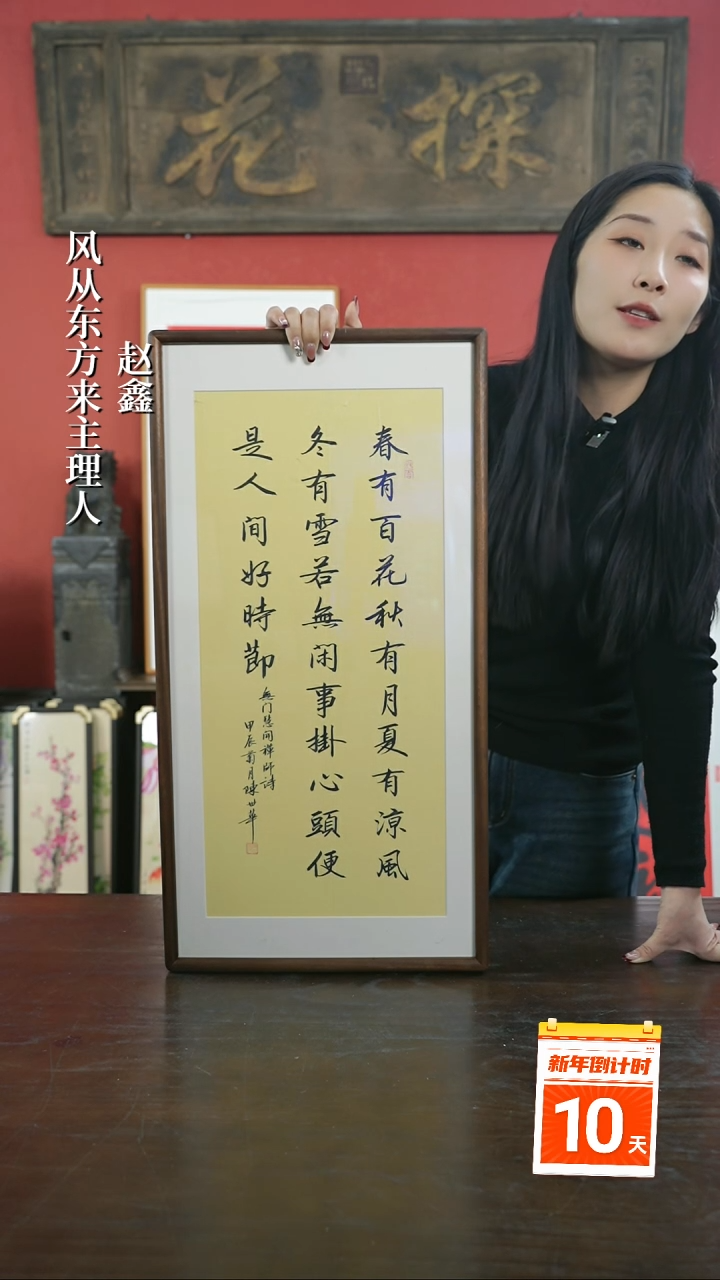 探花
风从东方来主理人
赵鑫
春有百花秋有月夏有凉風
冬有雪若無闲事掛心頭便
是人间好時節
無门慧開禅师诗
甲辰菊月陳世華
新年倒计时
10天